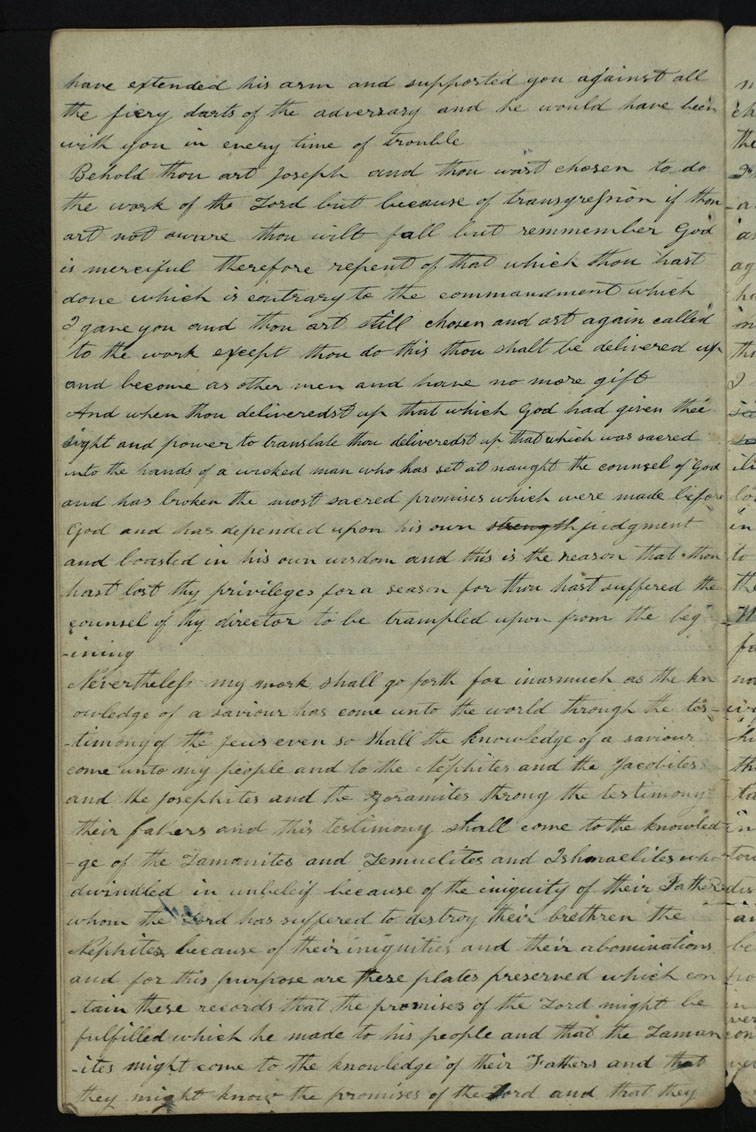 have extended his arm and supported you against all
the fiery darts of the adversary and he would have been
with you in every time of trouble
Behold thou art Joseph and thou wast chosen to do
the work of the Lord but because of transgression if thou
art not aware thou wilt fall but remmember God
is merciful therefore repent of that which thou hast
done which is contrary to the commandment which
I gave you and thou art still chosen and art again called
to the work except thou do this thou shalt be delivered up
and become as other men and have no more gift
And when thou deliveredst up that which God had given thee
sight and power to translate thou deliveredst up that which was sacred
into the hands of a wicked man who has set at naught the counsel of God
and has broken the most sacred promises which were made before
God and has depended upon his own strength judgment
and boasted in his own wisdom and this is the reason that thou
hast lost thy privileges for a season for thou hast suffered the
counsel of thy director to be trampled upon from the beg
-ining
Nevertheless my work shall go forth for inasmuch as the kn
owledge of a saviour has come unto the world through the tes-
-timony of the Jews even so shall the knowledge of a saviour
come unto my people and to the Nephites and the Jacobites
and the Josephites and the Zoramites throug the testimony
their fathers and this testimony shall come to the knowled
-ge of the Lamanites and Lemuelites and Ishmaelites who
dwindled in unbeleif because of the iniquity of their Fathers
whom the Lord has suffered to destroy their brethren the
Nephites because of their iniquities and their abominations
and for this purpose are these plates preserved which con
-tain these records that the promises of the Lord might be
fulfilled which he made to his people and that the Laman
-ites might come to the knowledge of their Fathers and that
they might know the promises of the Lord and that they